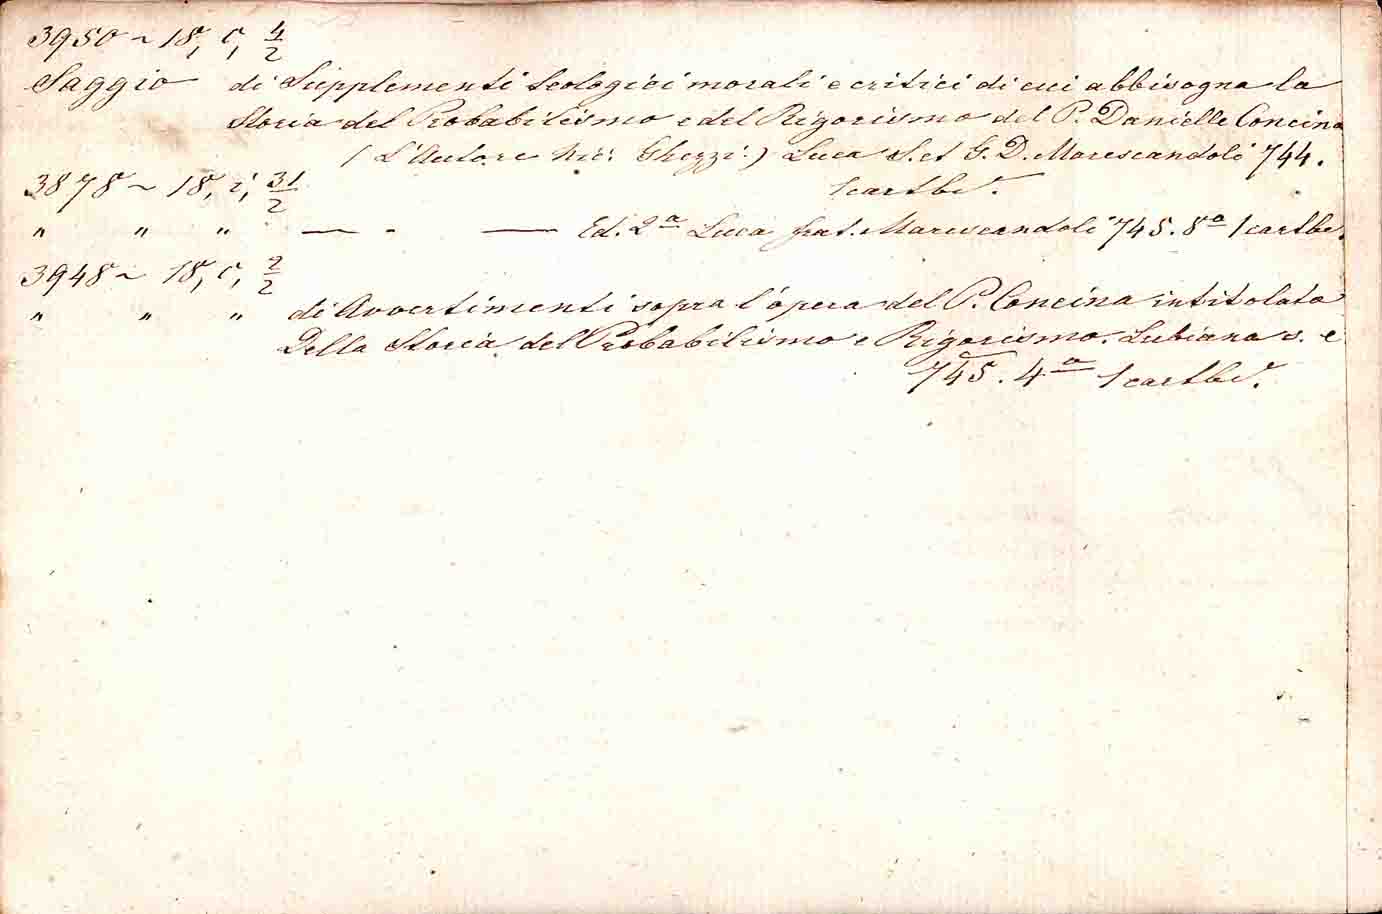 3950 ~ 18, c, 4/2
Saggio di Supplementi teologici morali e critici di cui abbisogna la
Storia del Probabilismo e del Rigorismo del P. Danielle Concina
(L'Autore Nic: Ghezzi.) Luca S. et G. D. Marescandoli 744.
3878 ~ 18, i, 31/2
1 cartbe.
" " " — - — Ed. 2a Luca frat. Marescandoli 745. 8a 1 cartbe.
3948 ~ 18, c, 2/2
" " " di Avvertimenti sopra l'opera del P. Concina intitolata
Della Storia del Probabilismo e Rigorismo. Lubiana s. e
745. 4a 1 cartbe.